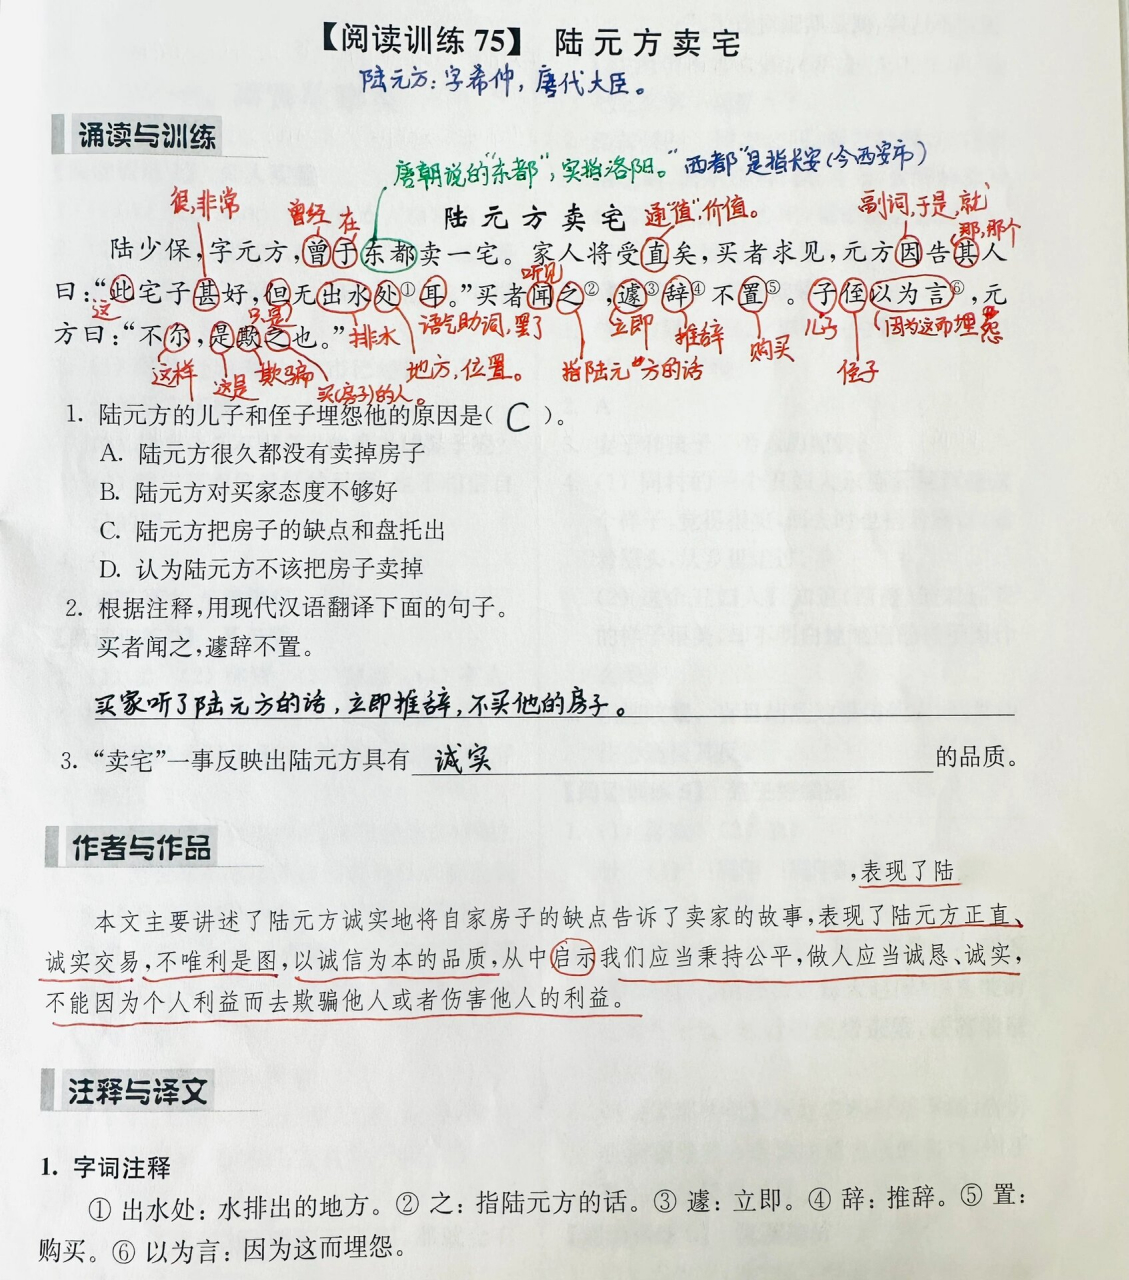 【阅读训练 75】 陆元方卖宅
陆元方:字希仲,唐代大臣。
诵读与训练
唐朝说的“东都”,实指洛阳。“西都”是指长安(今西安市)
很,非常 曾经 在 陆元方卖宅 通“值”,价值。 副词,于是,就 那,那个
陆少保,字元方,曾于东都卖一宅。家人将受直矣,买者求见,元方因告其人
听见
曰:“此宅子甚好,但无出水处①耳。”买者闻之②,遽③辞④不置⑤。子侄以为言⑥,元
这 只是
方曰:“不尔,是欺之也。” 排水 语气助词,罢了 立即 推辞 购买 儿子 (因为这而埋怨
这样 这是 欺骗 买(房子)的人。 地方,位置。 指陆元方的话 侄子
1. 陆元方的儿子和侄子埋怨他的原因是( C )。
A. 陆元方很久都没有卖掉房子
B. 陆元方对买家态度不够好
C. 陆元方把房子的缺点和盘托出
D. 认为陆元方不该把房子卖掉
2. 根据注释,用现代汉语翻译下面的句子。
买者闻之,遽辞不置。
买家听了陆元方的话,立即推辞,不买他的房子。
3. “卖宅”一事反映出陆元方具有 诚实 的品质。
作者与作品
,表现了陆
本文主要讲述了陆元方诚实地将自家房子的缺点告诉了卖家的故事,表现了陆元方正直、
诚实交易,不唯利是图,以诚信为本的品质,从中启示我们应当秉持公平,做人应当诚恳、诚实,
不能因为个人利益而去欺骗他人或者伤害他人的利益。
注释与译文
1. 字词注释
① 出水处:水排出的地方。② 之:指陆元方的话。③ 遽:立即。④ 辞:推辞。⑤ 置:
购买。⑥ 以为言:因为这而埋怨。